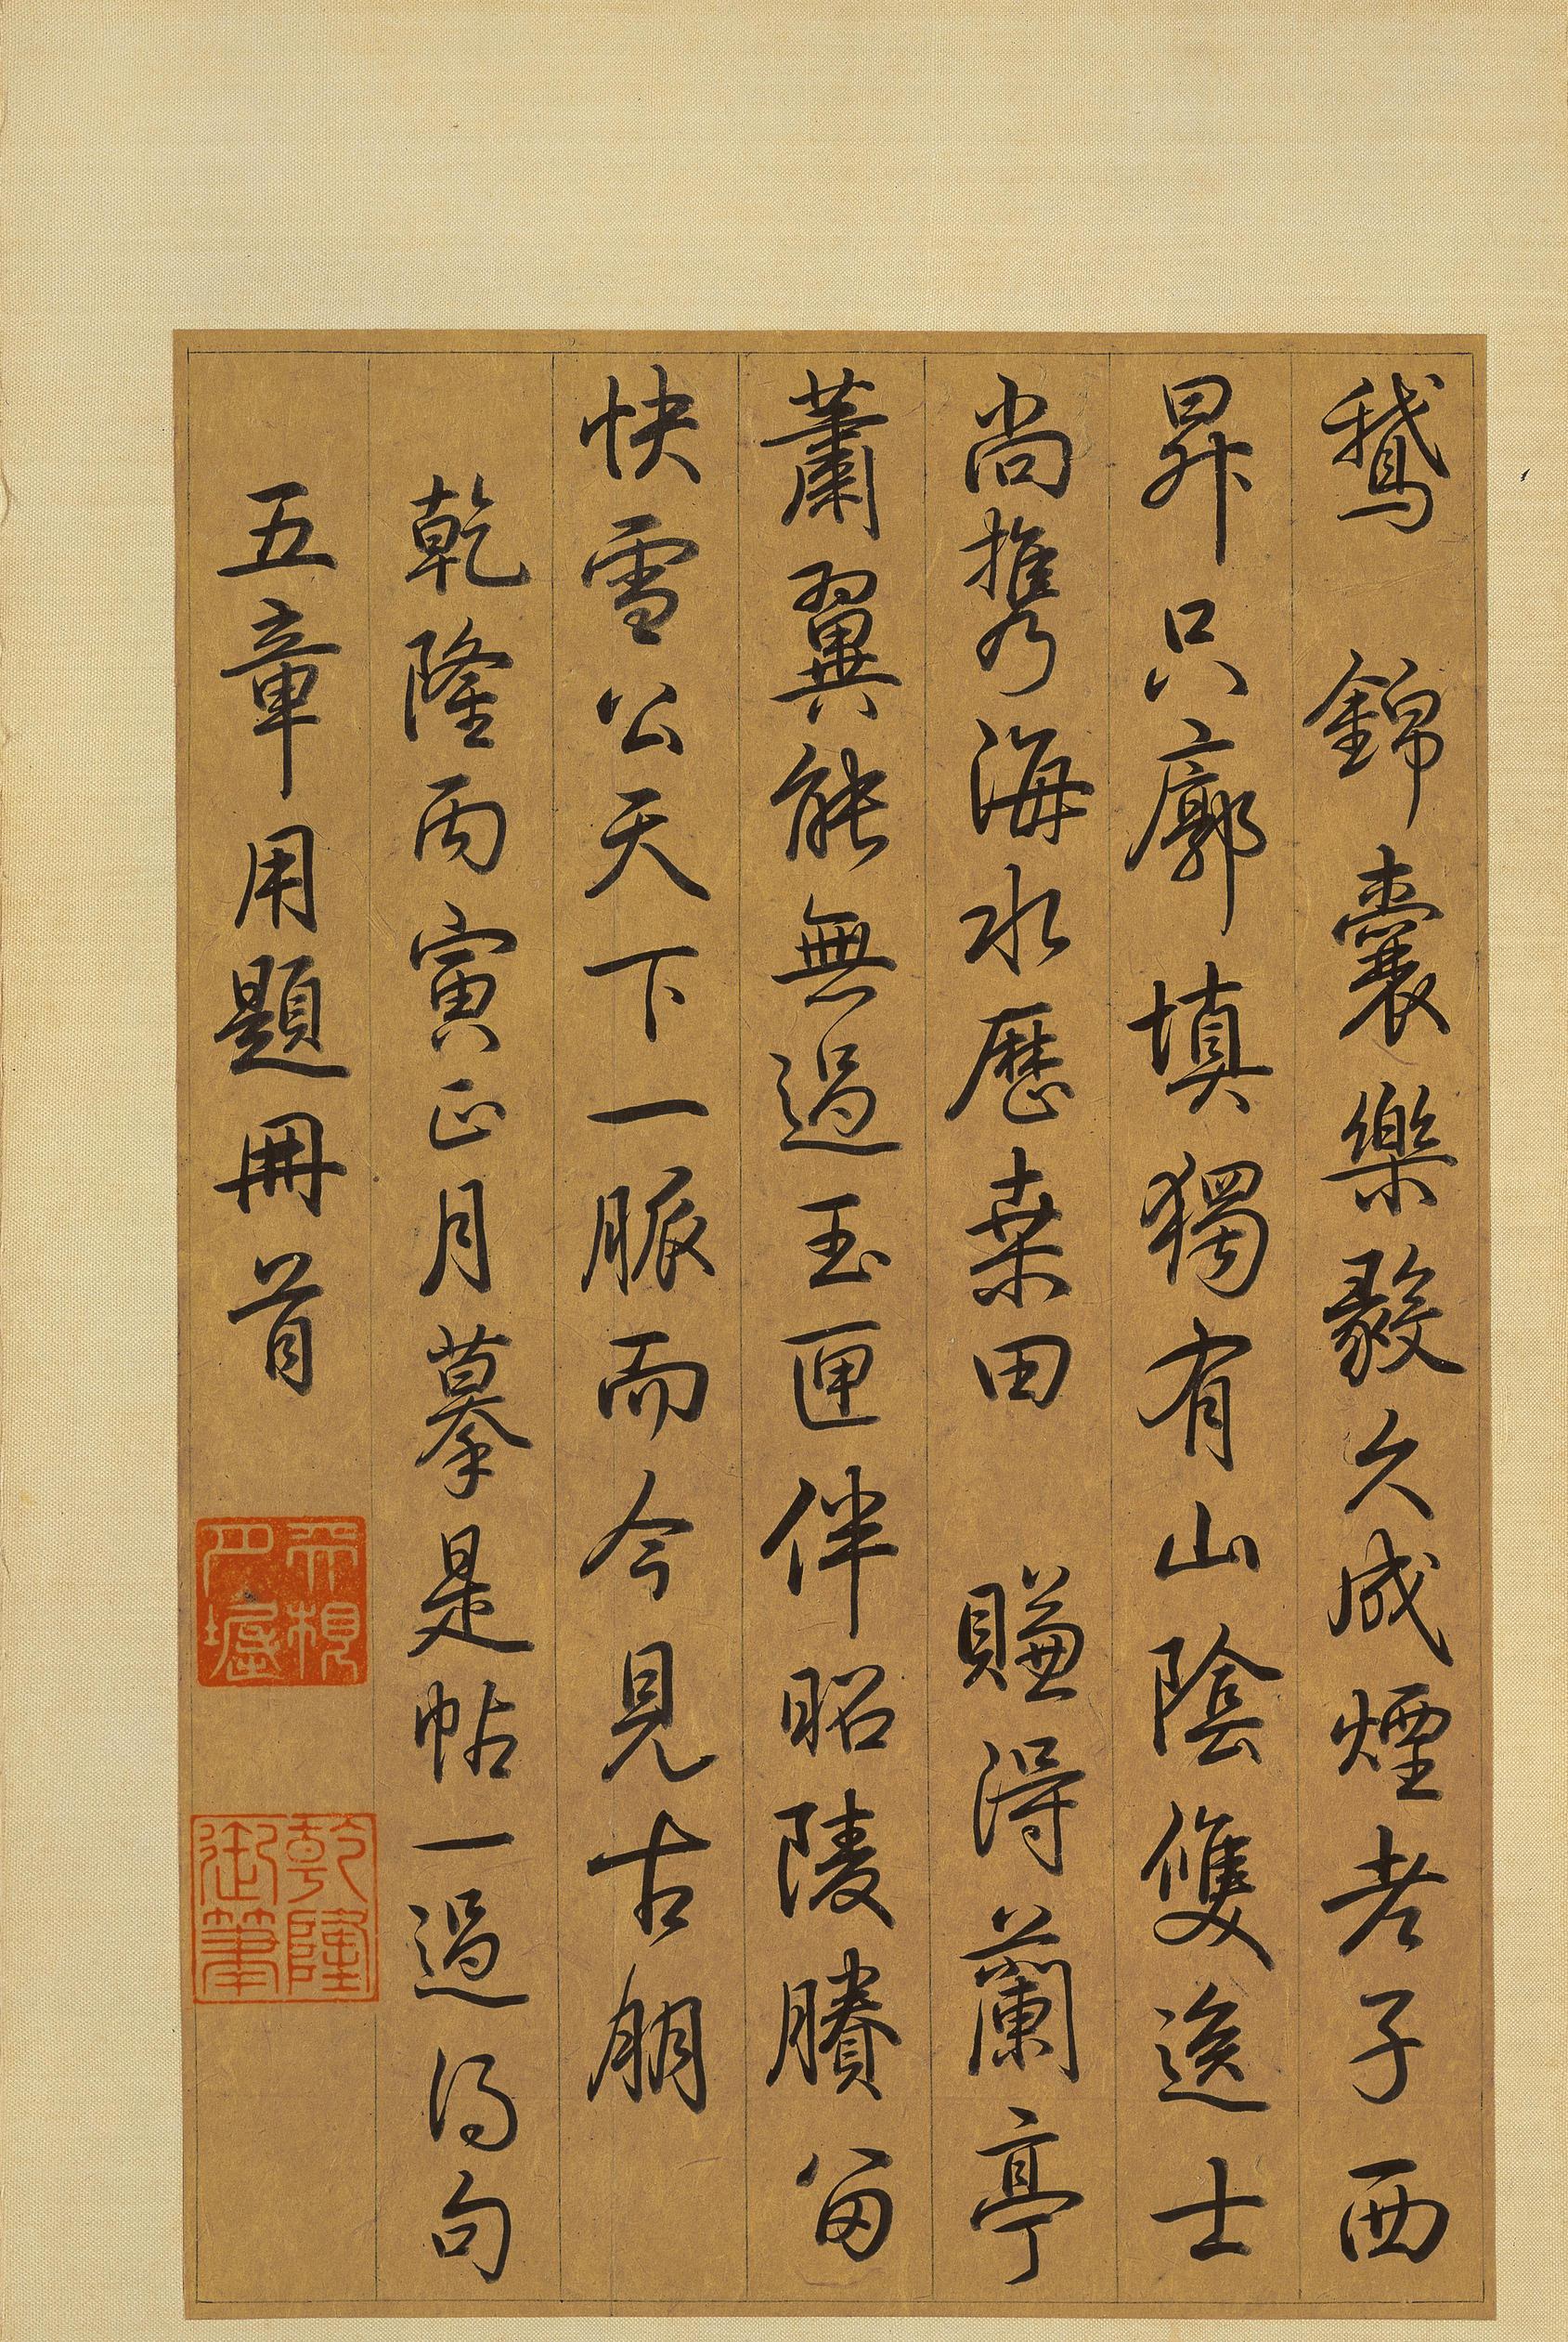 鵞　錦囊樂毅久成煙老子西
昇只廓填獨有山陰雙逸士
尚攜海水歷桒田　賺得蘭亭
蕭翼能無過玉匣伴昭陵賸留
快雪公天下一脈而今見古朋
乾隆丙寅正月摹是帖一過得句
五章用題冊首
乾隆
御筆